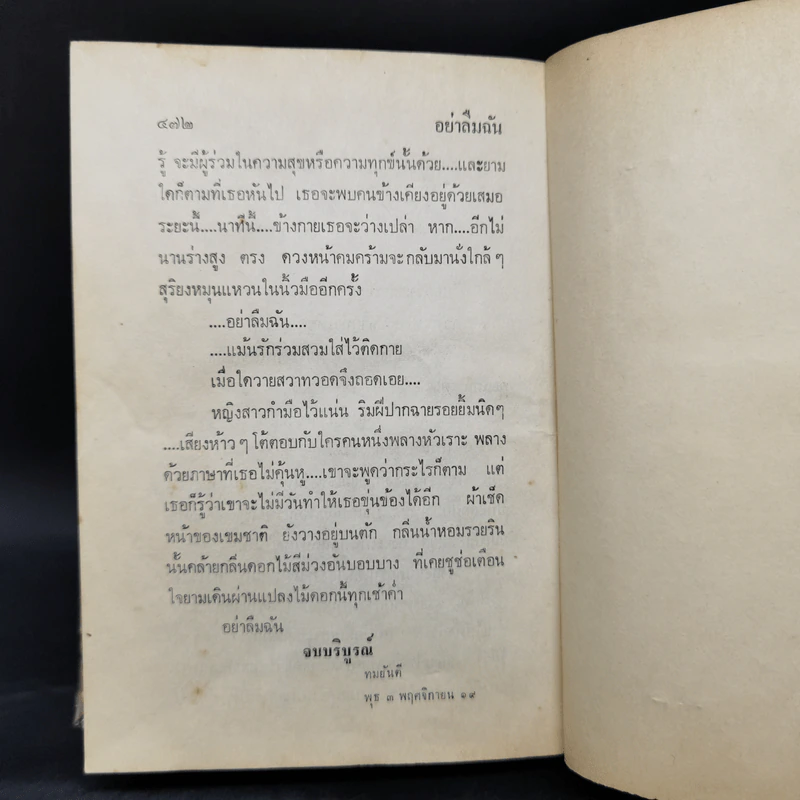 ๔๗๒ อย่าลืมฉัน
รู้ จะมีผู้ร่วมในความสุขหรือความทุกข์นั้นด้วย....และยาม
ใดก็ตามที่เธอหันไป เธอจะพบคนข้างเคียงอยู่ด้วยเสมอ
ระยะนี้....นาทีนี้....ข้างกายเธอจะว่างเปล่า หาก....อีกไม่
นานร่างสูง ตรง ดวงหน้าคมคร้ามจะกลับมานั่งใกล้ๆ
สุริยงหมุนแหวนในนิ้วมืออีกครั้ง
....อย่าลืมฉัน....
....แม้นรักร่วมสวมใส่ไว้ติดกาย
เมื่อใดวายสวาทวอดจึงถอดเอย....
หญิงสาวกำมือไว้แน่น ริมฝีปากฉายรอยยิ้มนิดๆ
....เสียงห้าวๆ โต้ตอบกับใครคนหนึ่งพลางหัวเราะ พลาง
ด้วยภาษาที่เธอไม่คุ้นหู....เขาจะพูดว่ากระไรก็ตาม แต่
เธอก็รู้ว่าเขาจะไม่มีวันทำให้เธอขุ่นข้องได้อีก ผ้าเช็ด
หน้าของเขมชาติ ยังวางอยู่บนตัก กลิ่นน้ำหอมรวยริน
นั้นคล้ายกลิ่นดอกไม้สีม่วงอันบอบบาง ที่เคยชูช่อเตือน
ใจยามเดินผ่านแปลงไม้ดอกนี้ทุกเช้าค่ำ
อย่าลืมฉัน
จบบริบูรณ์
ทมยันตี
พุธ ๓ พฤศจิกายน ๑๙